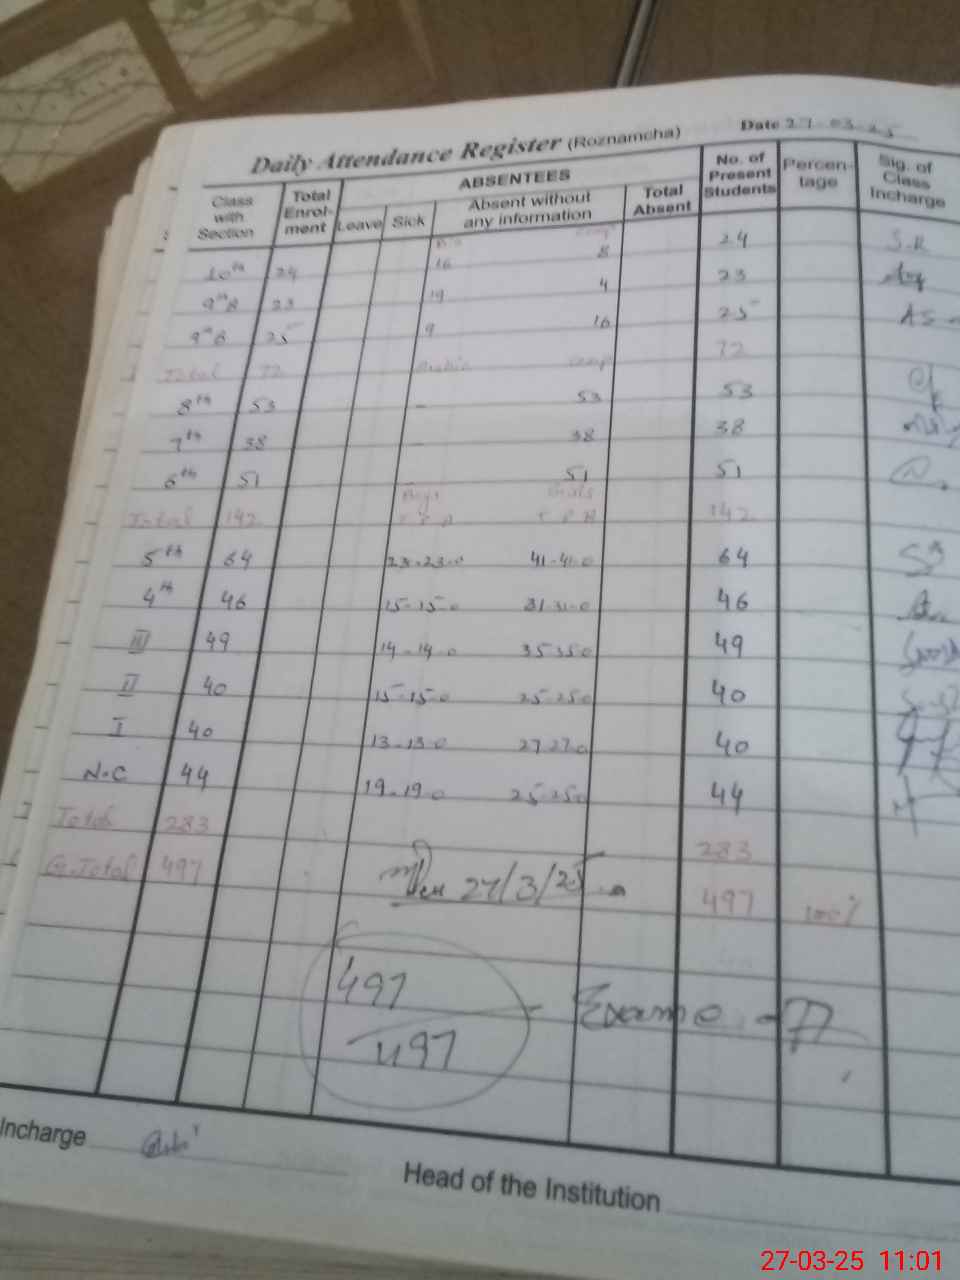 Daily Attendance Register (Roznamcha) Date 27-03-25
Class with Section Total Enrol-ment ABSENTEES Leave Sick Absent without any information Total Absent No. of Present Students Percen-tage Sig. of Class Incharge
10th 24 16 8 24 S.R
9th B 23 19 4 23
9th B 25 9 16 25 AS
Total 72 Comp 72
8th 53 - 53 53
7th 38 - 38 38
6th 51 51 51
Boys Girls
Total 142 T P A T P A 142
5th 64 23-23-0 41-41-0 64
4th 46 15-15-0 31-31-0 46
III 49 14-14-0 35 35 0 49
II 40 15-15-0 25-25 0 40
I 40 13-13-0 27 27 0 40
N.C 44 19-19-0 25-25 0 44
Total 283 283
G.Total 497 497 100%
27/3/25
497
497
Incharge
Head of the Institution
27-03-25 11:01